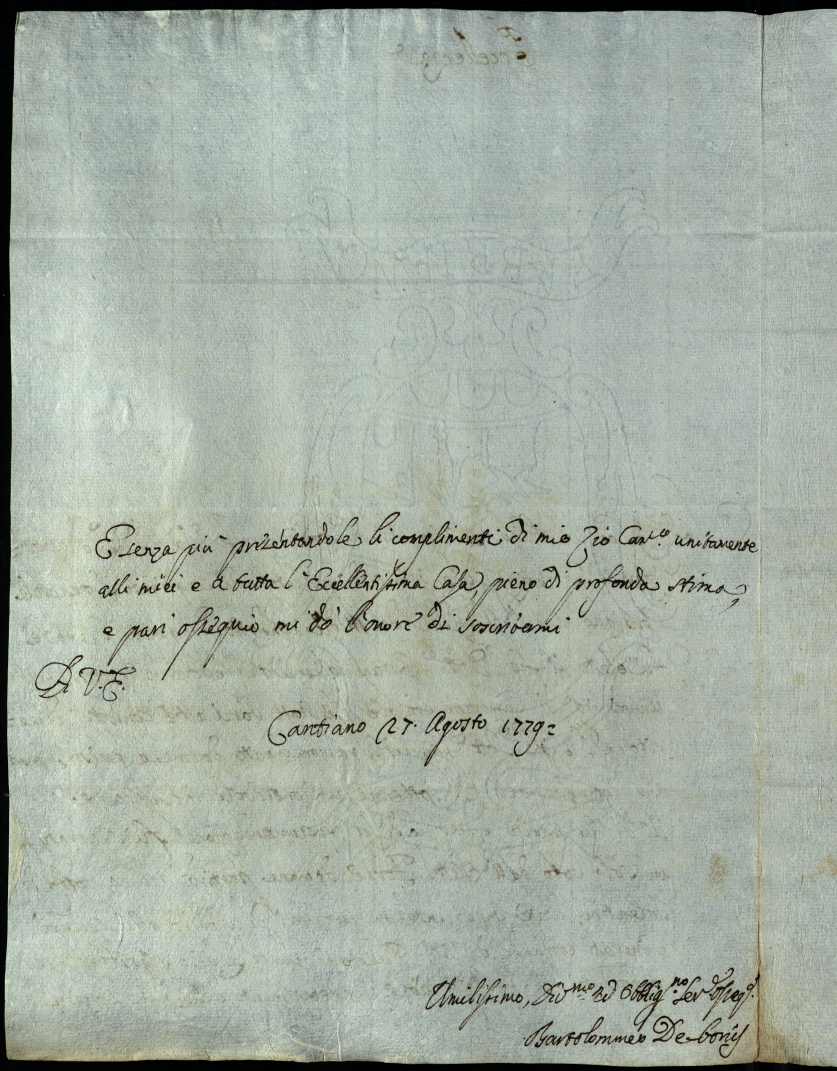 E senza più presentandole li complimenti di mio Zio Can.co unitamente
alli miei e a tutta l'Eccellentissima Casa, pieno di profonda stima,
e pari ossequio mi dò l'onore di soscrivermi
Di V. E.
Cantiano 27. Agosto 1779=
Umilissimo, Div.mo ed Obblig.mo Ser.
Bartolommeo De-bonis